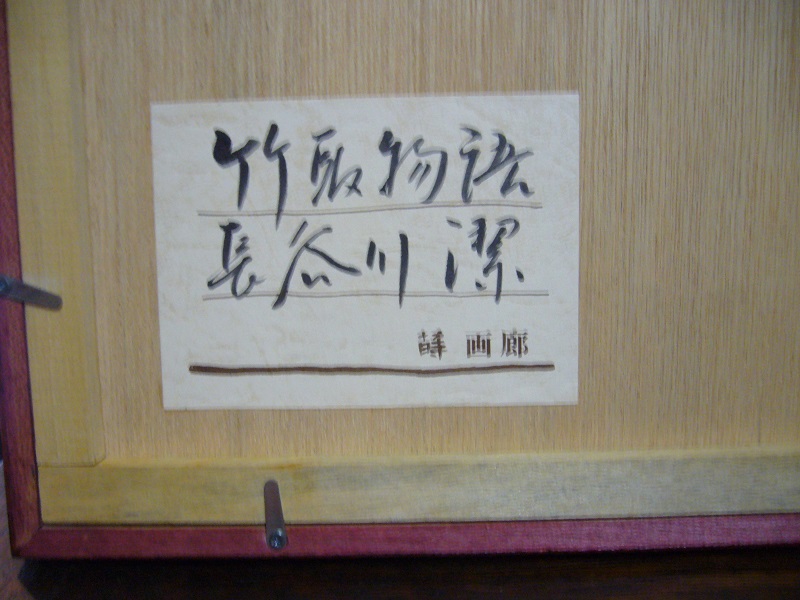 竹取物語
長谷川潔
画廊